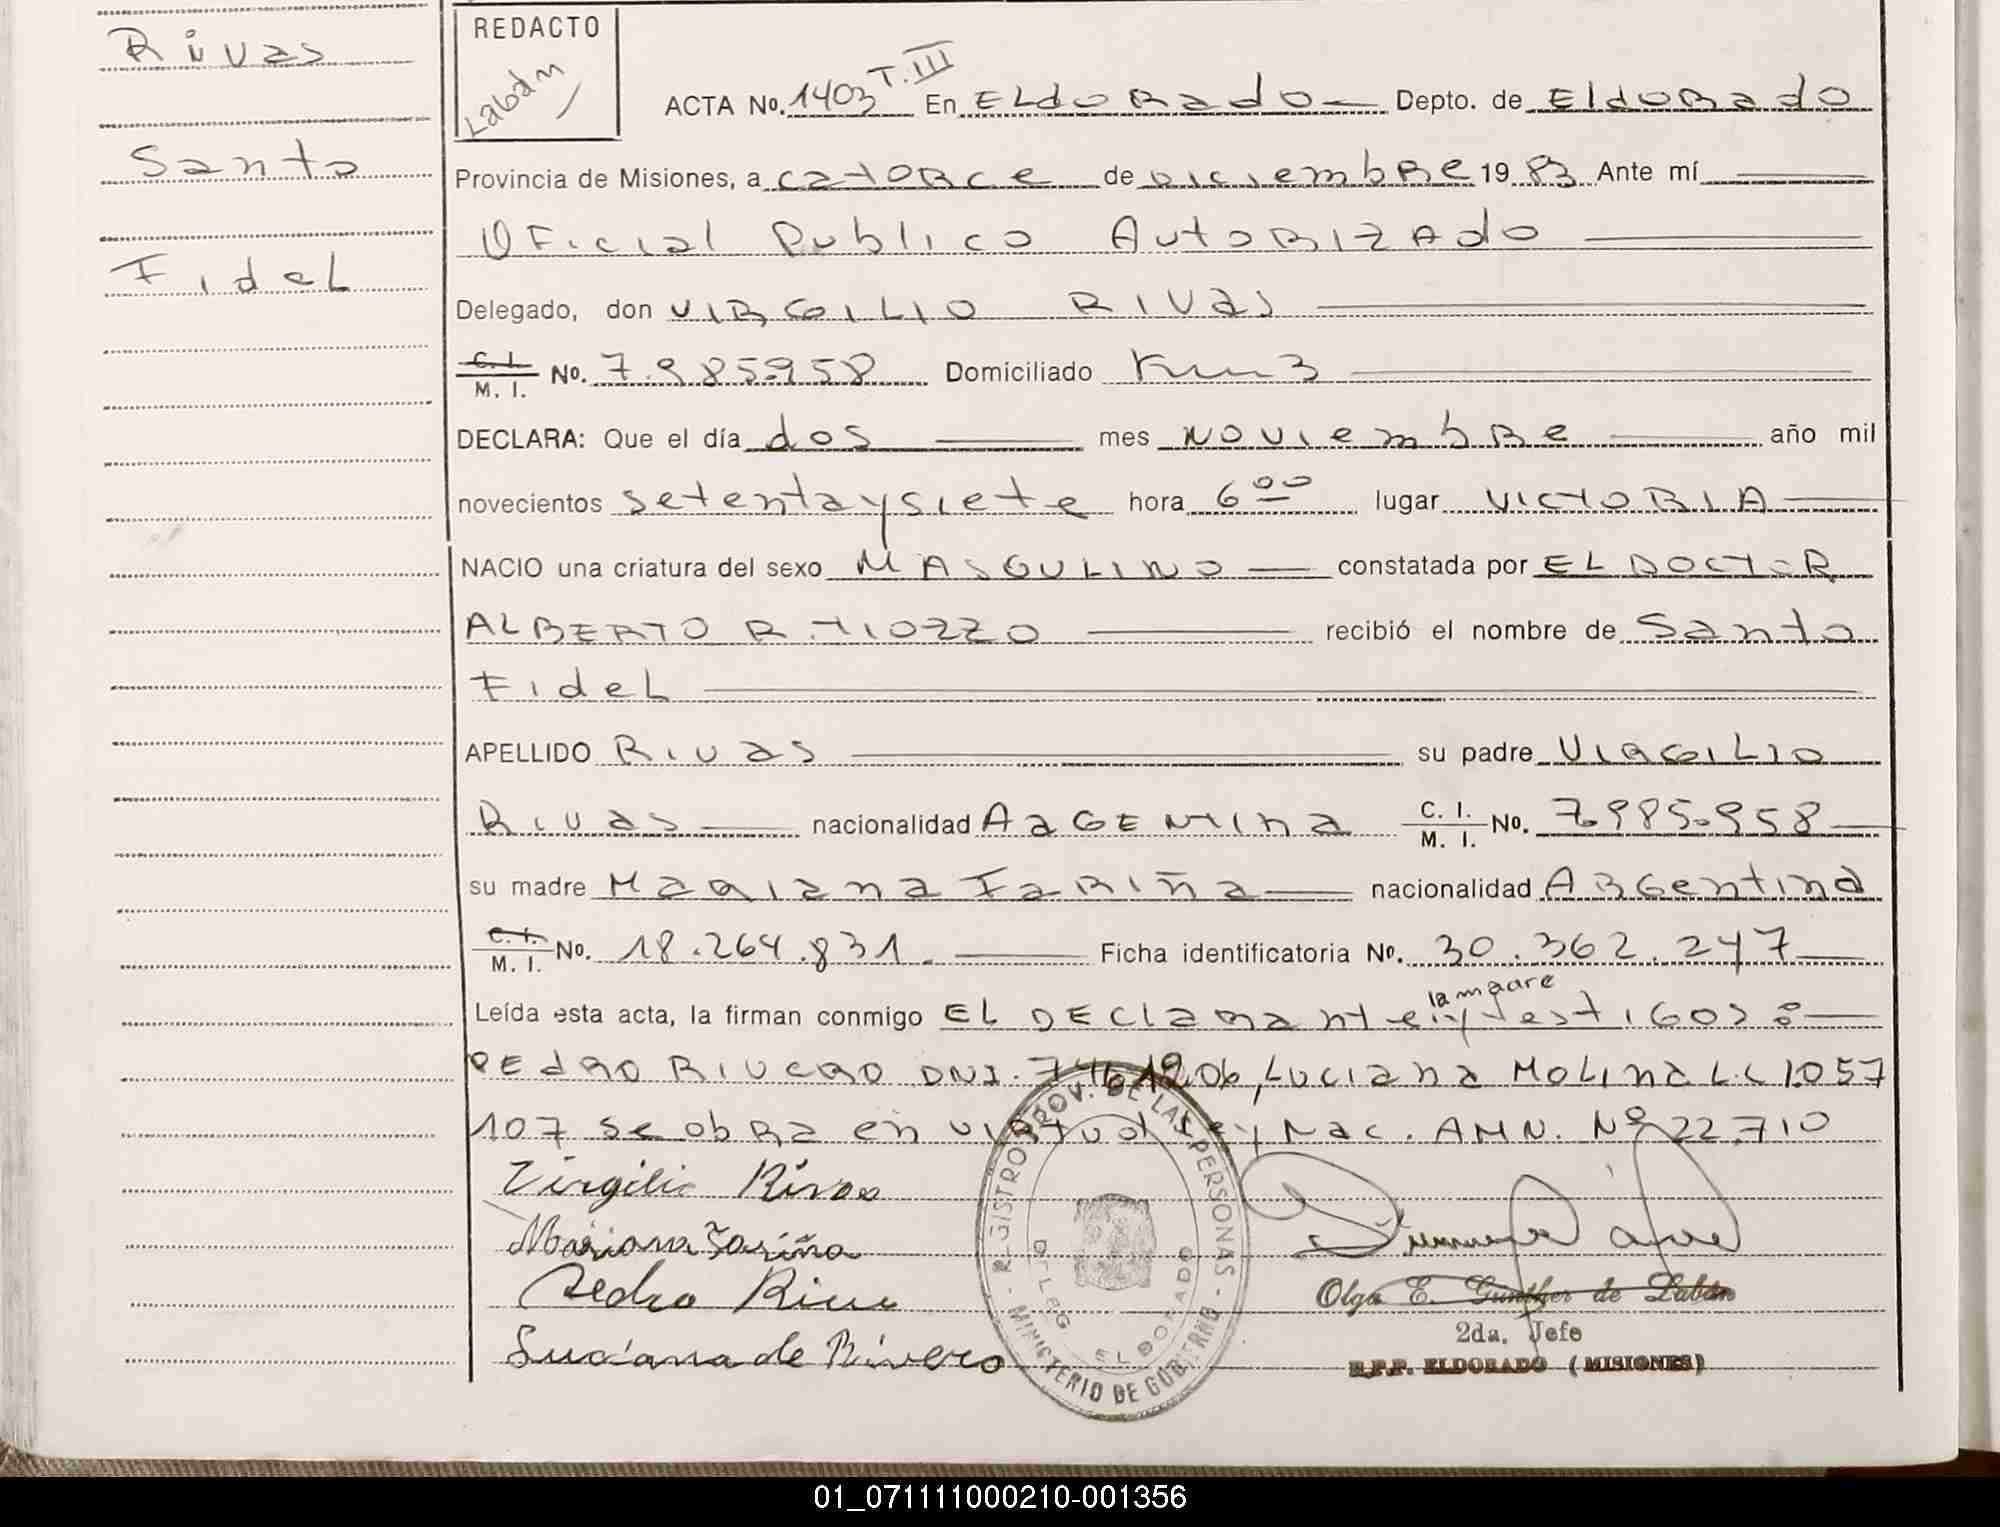 Rivas
Santo
Fidel
REDACTO
Laban
ACTA No. 1403 T. III En ELdoRado Depto. de ELdoRado
Provincia de Misiones, a catoRce de DiciembRe 19 83 Ante mí
OFicial Publico AutoRIzAdo
Delegado, don VIRGILIO RIVas
C. I. M. I. No. 7.985.958 Domiciliado Km 3
DECLARA: Que el día dos mes NoviembRe año mil
novecientos setentaysiete hora 6 00 lugar VICtORIA
NACIO una criatura del sexo MASGULINO constatada por EL DOCtoR
ALBERTO R. TIOZZO recibió el nombre de Santo
FideL
APELLIDO Rivas su padre VIRGILIO
Rivas nacionalidad ARGENtina C. I. M. I. No. 7.985.958
su madre MaRiana FaRiña nacionalidad ARGentina
C. I. M. I. No. 18.264.831. Ficha identificatoria No. 30.362.247
Leída esta acta, la firman conmigo EL DEClaRante, la madre y testigos:
PEdRO RIVERO DNI. 7.461.206, Luciana MoLina L.C 1.057
107 se obRa en viRtud Ley Nac. AMN. Nº 22.710
Virgilio Rivas
Mariana Fariña
Pedro Rivero
Luciana de Rivero
REGISTRO PROV. DE LAS PERSONAS - MINISTERIO DE GOBIERNO -
DELEG. ELDORADO
Olga E. Gunther de Labán
2da. Jefe
R.P.P. ELDORADO (MISIONES)
01_071111000210-001356